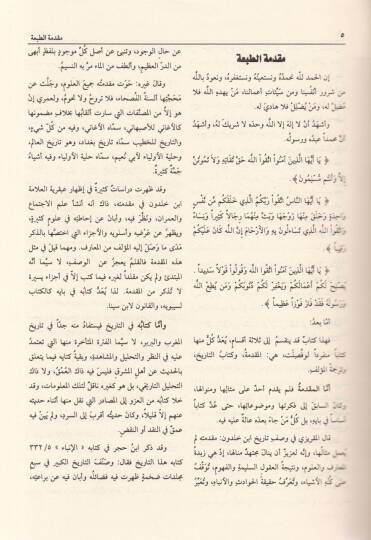 ٥
مقدمة الطبعة
مقدمة الطبعة
إن الحمد لله نحمدُهُ ونستعينُهُ ونستغفرُه، ونعوذُ باللَّهِ
من شرور أنفُسِنا ومن سيّئاتِ أعمالنا، مَنْ يهدهِ اللَّه فلا
مُضِلَّ له، ومَنْ يُضلِلْ فلا هاديَ له.
وأشهدُ أنْ لا إلهَ إلا اللَّه وحدَه لا شريكَ له، وأشهدُ
أنَّ محمداً عبدُه ورسوله.
﴿ يَا أَيُّهَا الَّذِينَ آمَنُوا اتَّقُوا اللَّهَ حَقَّ تُقَاتِهِ وَلَا تَمُوتُنَّ
إِلَّا وَأَنتُم مُّسْلِمُونَ ﴾.
﴿ يَا أَيُّهَا النَّاسُ اتَّقُوا رَبَّكُمُ الَّذِي خَلَقَكُم مِّن نَّفْسٍ
وَاحِدَةٍ وَخَلَقَ مِنْهَا زَوْجَهَا وَبَثَّ مِنْهُمَا رِجَالاً كَثِيراً وَنِسَاءً
وَاتَّقُوا اللَّهَ الَّذِي تَسَاءَلُونَ بِهِ وَالْأَرْحَامَ إِنَّ اللَّهَ كَانَ عَلَيْكُمْ
رَقِيباً ﴾.
﴿ يَا أَيُّهَا الَّذِينَ آمَنُوا اتَّقُوا اللَّهَ وَقُولُوا قَوْلاً سَدِيداً .
يُصْلِحْ لَكُمْ أَعْمَالَكُمْ وَيَغْفِرْ لَكُمْ ذُنُوبَكُمْ وَمَن يُطِعِ اللَّهَ
وَرَسُولَهُ فَقَدْ فَازَ فَوْزاً عَظِيماً ﴾.
أمّا بعدُ:
فهذا كتابٌ قد ينقسمُ إلى ثلاثةِ أقسامٍ، يُعَدُّ كلٌّ منها
كتاباً منفرداً لو فُصِلتْ، هي: المقدمةُ، وكتابُ التاريخِ،
وترجمةُ المؤلف.
أمّا المقدمةُ فلم يقدم أحدٌ على مثالِها ومنوالها،
وكان السابقَ إلى فكرتها وموضوعاتِها، حتى عُدَّ كتاباً
أساسياً في بابه، بل كلُّ مَنْ جاءَ بعدَه عالةٌ عليه فيه.
قال المقريزي في وصفِ تاريخِ ابنِ خلدون: مقدمته لم
يعمل مثالُها، وإنه لعزيزٌ أن ينالَ مجتهدٌ منالها، إذ هي زبدةُ
المعارفِ والعلومِ، ونتيجةُ العقولِ السليمةِ والفهومِ، تُوقِّفُ
على كُنْهِ الأشياء، وتُعَرِّفُ حقيقةَ الحوادثِ والأنباء، وتُعَبِّرُ
عن حالِ الوجود، وتنبئ عن أصلِ كُلِّ موجودٍ بلفظٍ أبهى
من الدرِّ النظيم، وألطفَ من الماءِ مرَّ به النسيمُ.
وقالَ غيره: حَوَتْ مقدمتُه جميعَ العلوم، وجَلَّتْ عن
مَحَجَّتِها ألسنةُ الفُصحاء، فلا تروحُ ولا تحومُ، ولعمري إنْ
هو إلّا من المصنّفاتِ التي سارت ألقابُها بخلافِ مضمونِها
كالأغاني للأصبهاني، سمّاه الأغاني، وفيه من كلِّ شيءٍ،
والتاريخِ للخطيبِ سمّاه تاريخَ بغداد، وهو تاريخُ العالم،
وحليةِ الأولياءِ لأبي نُعيم، سمّاه حليةَ الأولياءِ وفيه أشياءُ
جَمَّةٌ كثيرةٌ.
وقد ظهرت دراساتٌ كثيرةٌ في إظهارِ عبقريةِ العلّامة
ابنِ خلدون في مقدمته، ذاك أنه أنشأَ علمَ الاجتماع
والعمران، ونَظَّرَ فيه، وأبانَ عن إحاطتِه في علومٍ كثيرةٍ،
ويظهرُ من عَرْضِه وأسلوبِه والأجزاءِ التي اختصَّها بالذكرِ
مَدَى ما وَصَلَ إليه المؤلف من المعارف. ومهما قيلَ في مثلِ
هذه المقدمةِ فالقلمُ يعجزُ عن الوصفِ، لا سيّما أنه
المبتدئُ ولم يكن مقلّداً لغيرِه فيما كتبَ إلّا في أجزاءَ يسيرةٍ
لا تُذكر من المقدمة. لذا يُعَدُّ كتابُه في بابه كالكتاب
لسيبويه، والقانونِ لابنِ سينا.
وأمّا كتابُه في التاريخ فيستفادُ منه جدّاً في تاريخِ
المغربِ والبربرِ، لا سيّما الفترةَ المتأخرةَ منها التي تعتمدُ
عليه في النظرِ والتحليلِ والمشاهدةِ، وبقيةُ كتابِه فيما يتعلقُ
بالحديثِ عن أهلِ المشرقِ فليسَ فيه ذاكَ العُمْقُ، ولا ذاكَ
التحليلُ التاريخيُّ، بل هو كغيرِه ناقلٌ لتلكَ المعلوماتِ، وقد
خلا كتابُه من العزوِ إلى المصادرِ التي نقلَ منها أثناءَ حديثِه
عنهم إلّا قليلاً، وكان حديثُه أقربَ إلى السردِ، ولم يَبِنْ فيه
عمقٌ في النقدِ أو النقضِ.
وقد ذكر ابنُ حجر في كتابه «الإنباء» ٣٣٢/٥
كتابه هذا التاريخ فقال: وصنَّفَ التاريخَ الكبيرَ في سبعِ
مجلداتٍ ضخمةٍ ظهرت فيه فضائلُه وأبانَ فيه عن براعتِه،